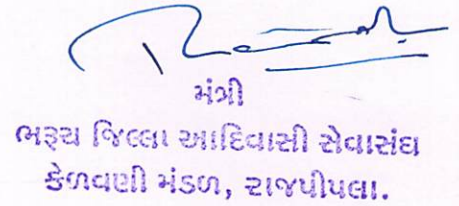 મંત્રી
ભરૂચ જિલ્લા આદિવાસી સેવાસંઘ
કેળવણી મંડળ, રાજપીપલા.